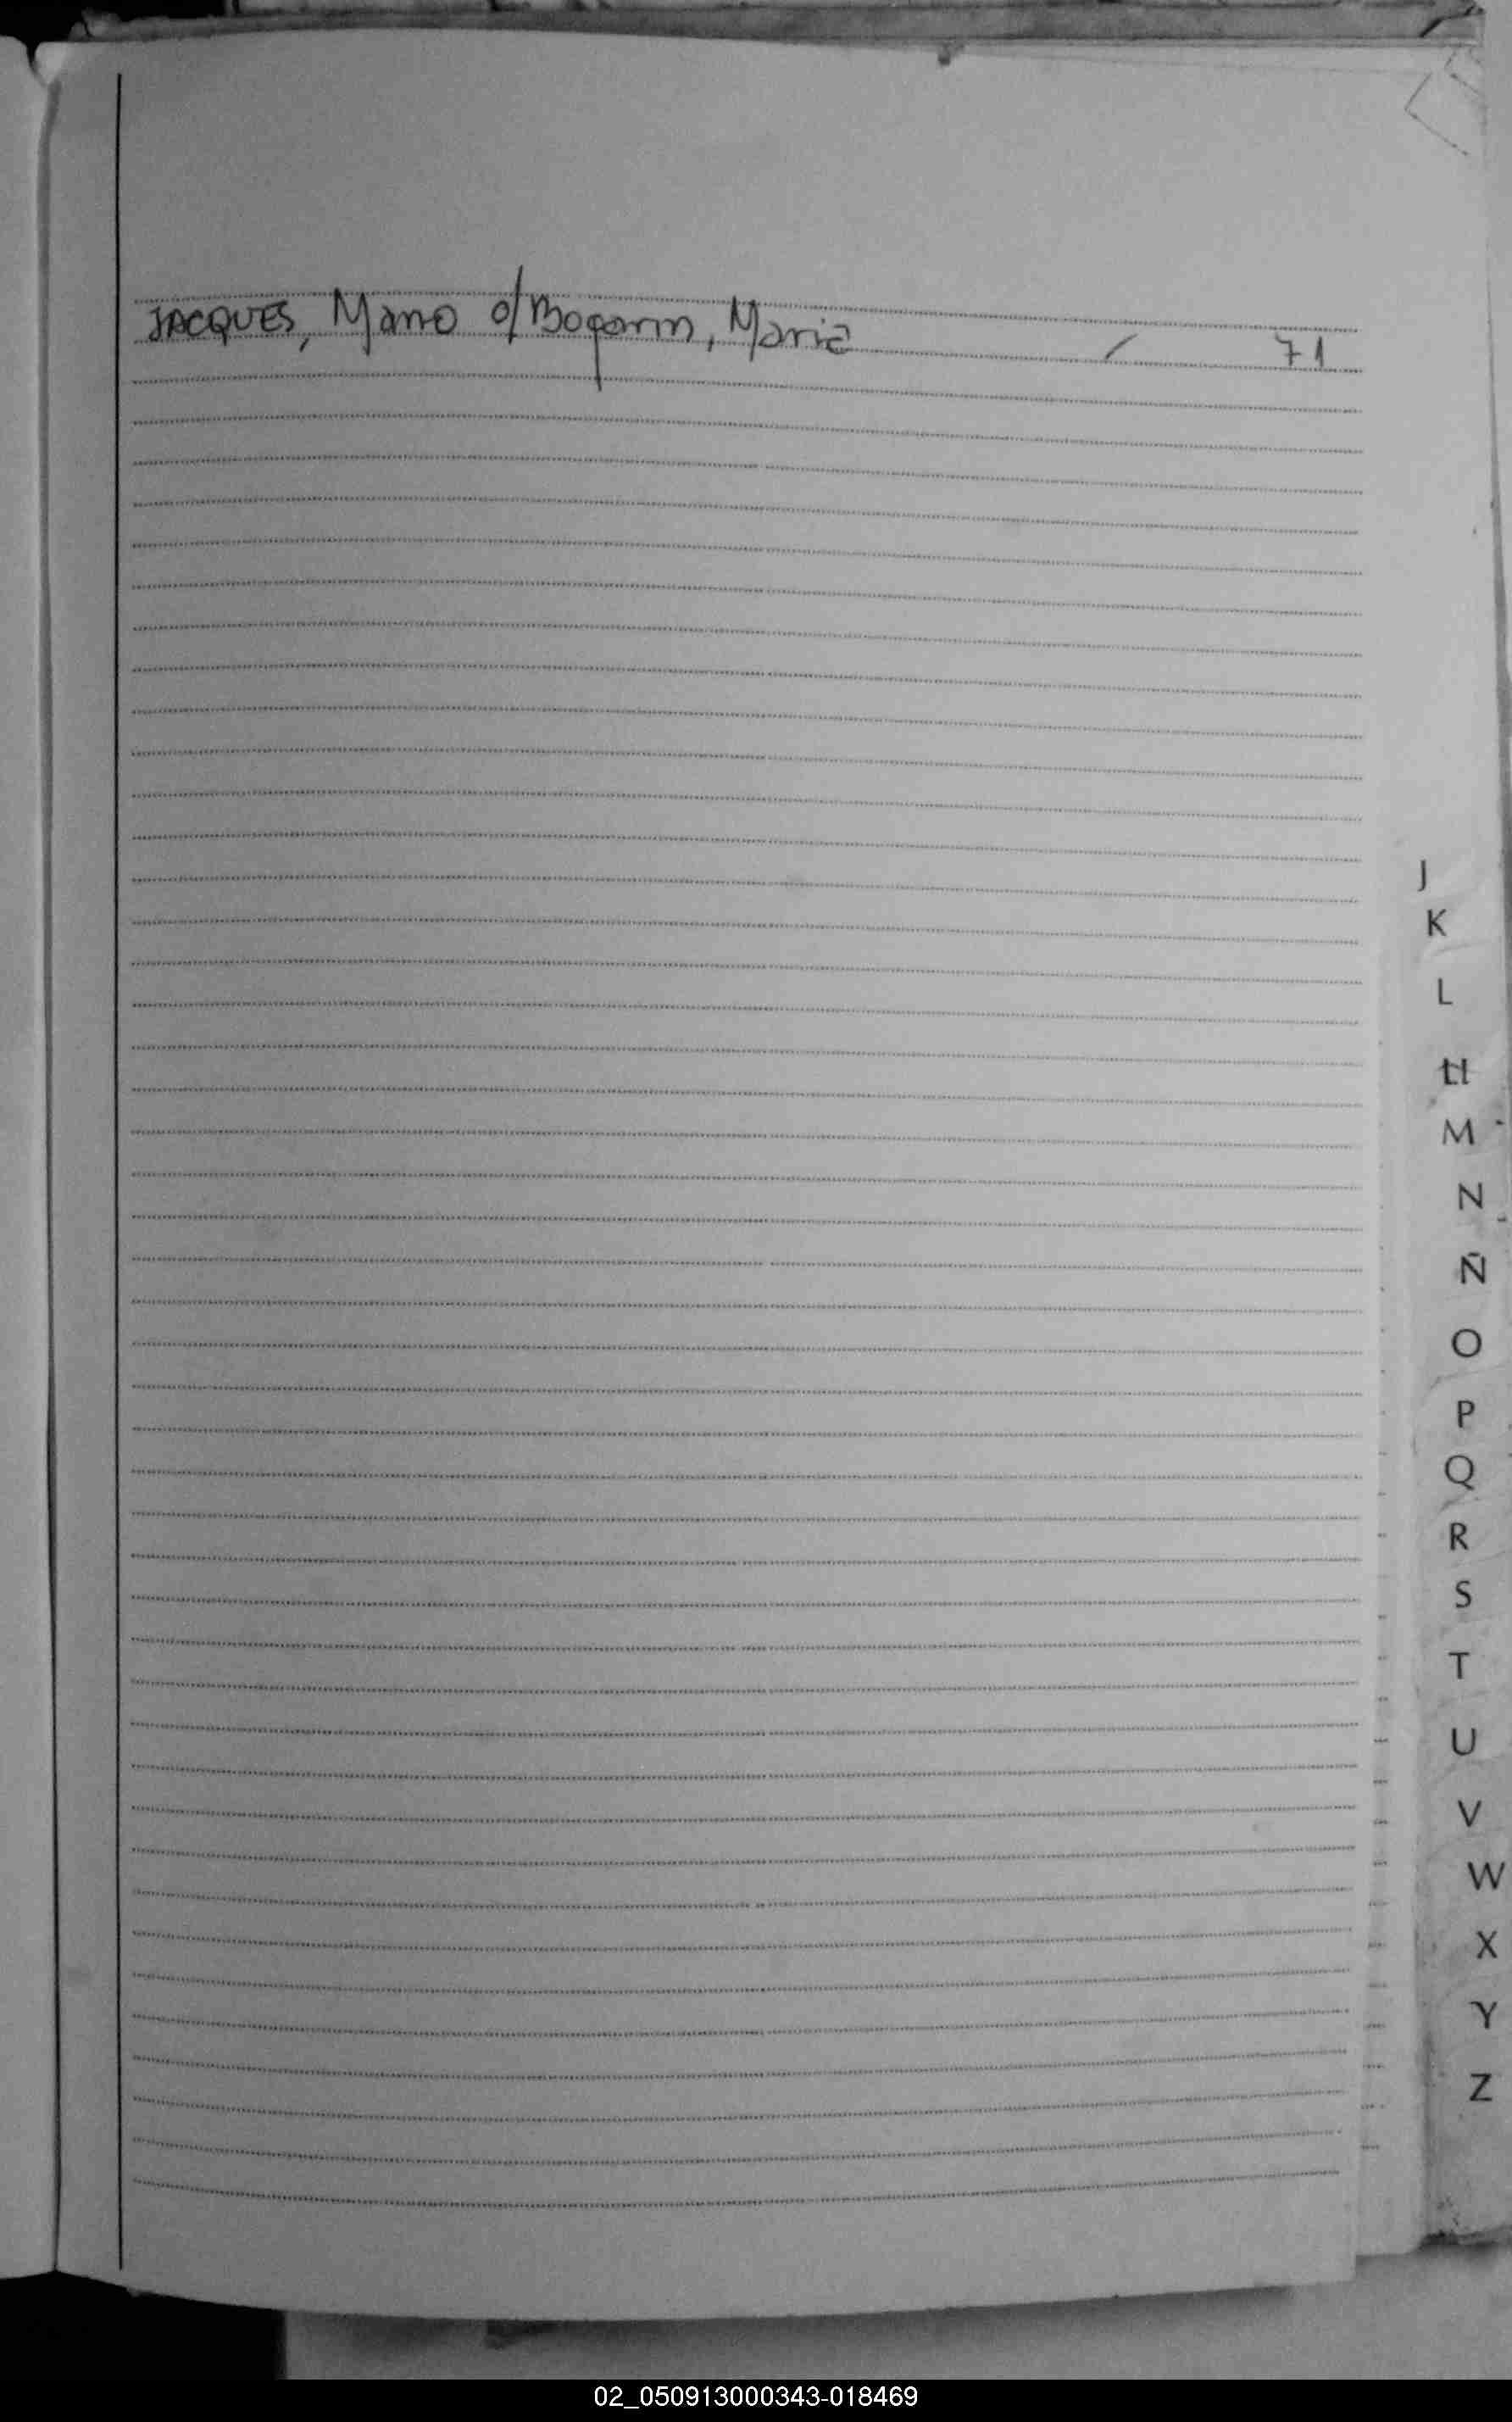 JACQUES, Mario c/Bogarin, Maria / 71
J
K
L
Ll
M
N
Ñ
O
P
Q
R
S
T
U
V
W
X
Y
Z
02_050913000343-018469